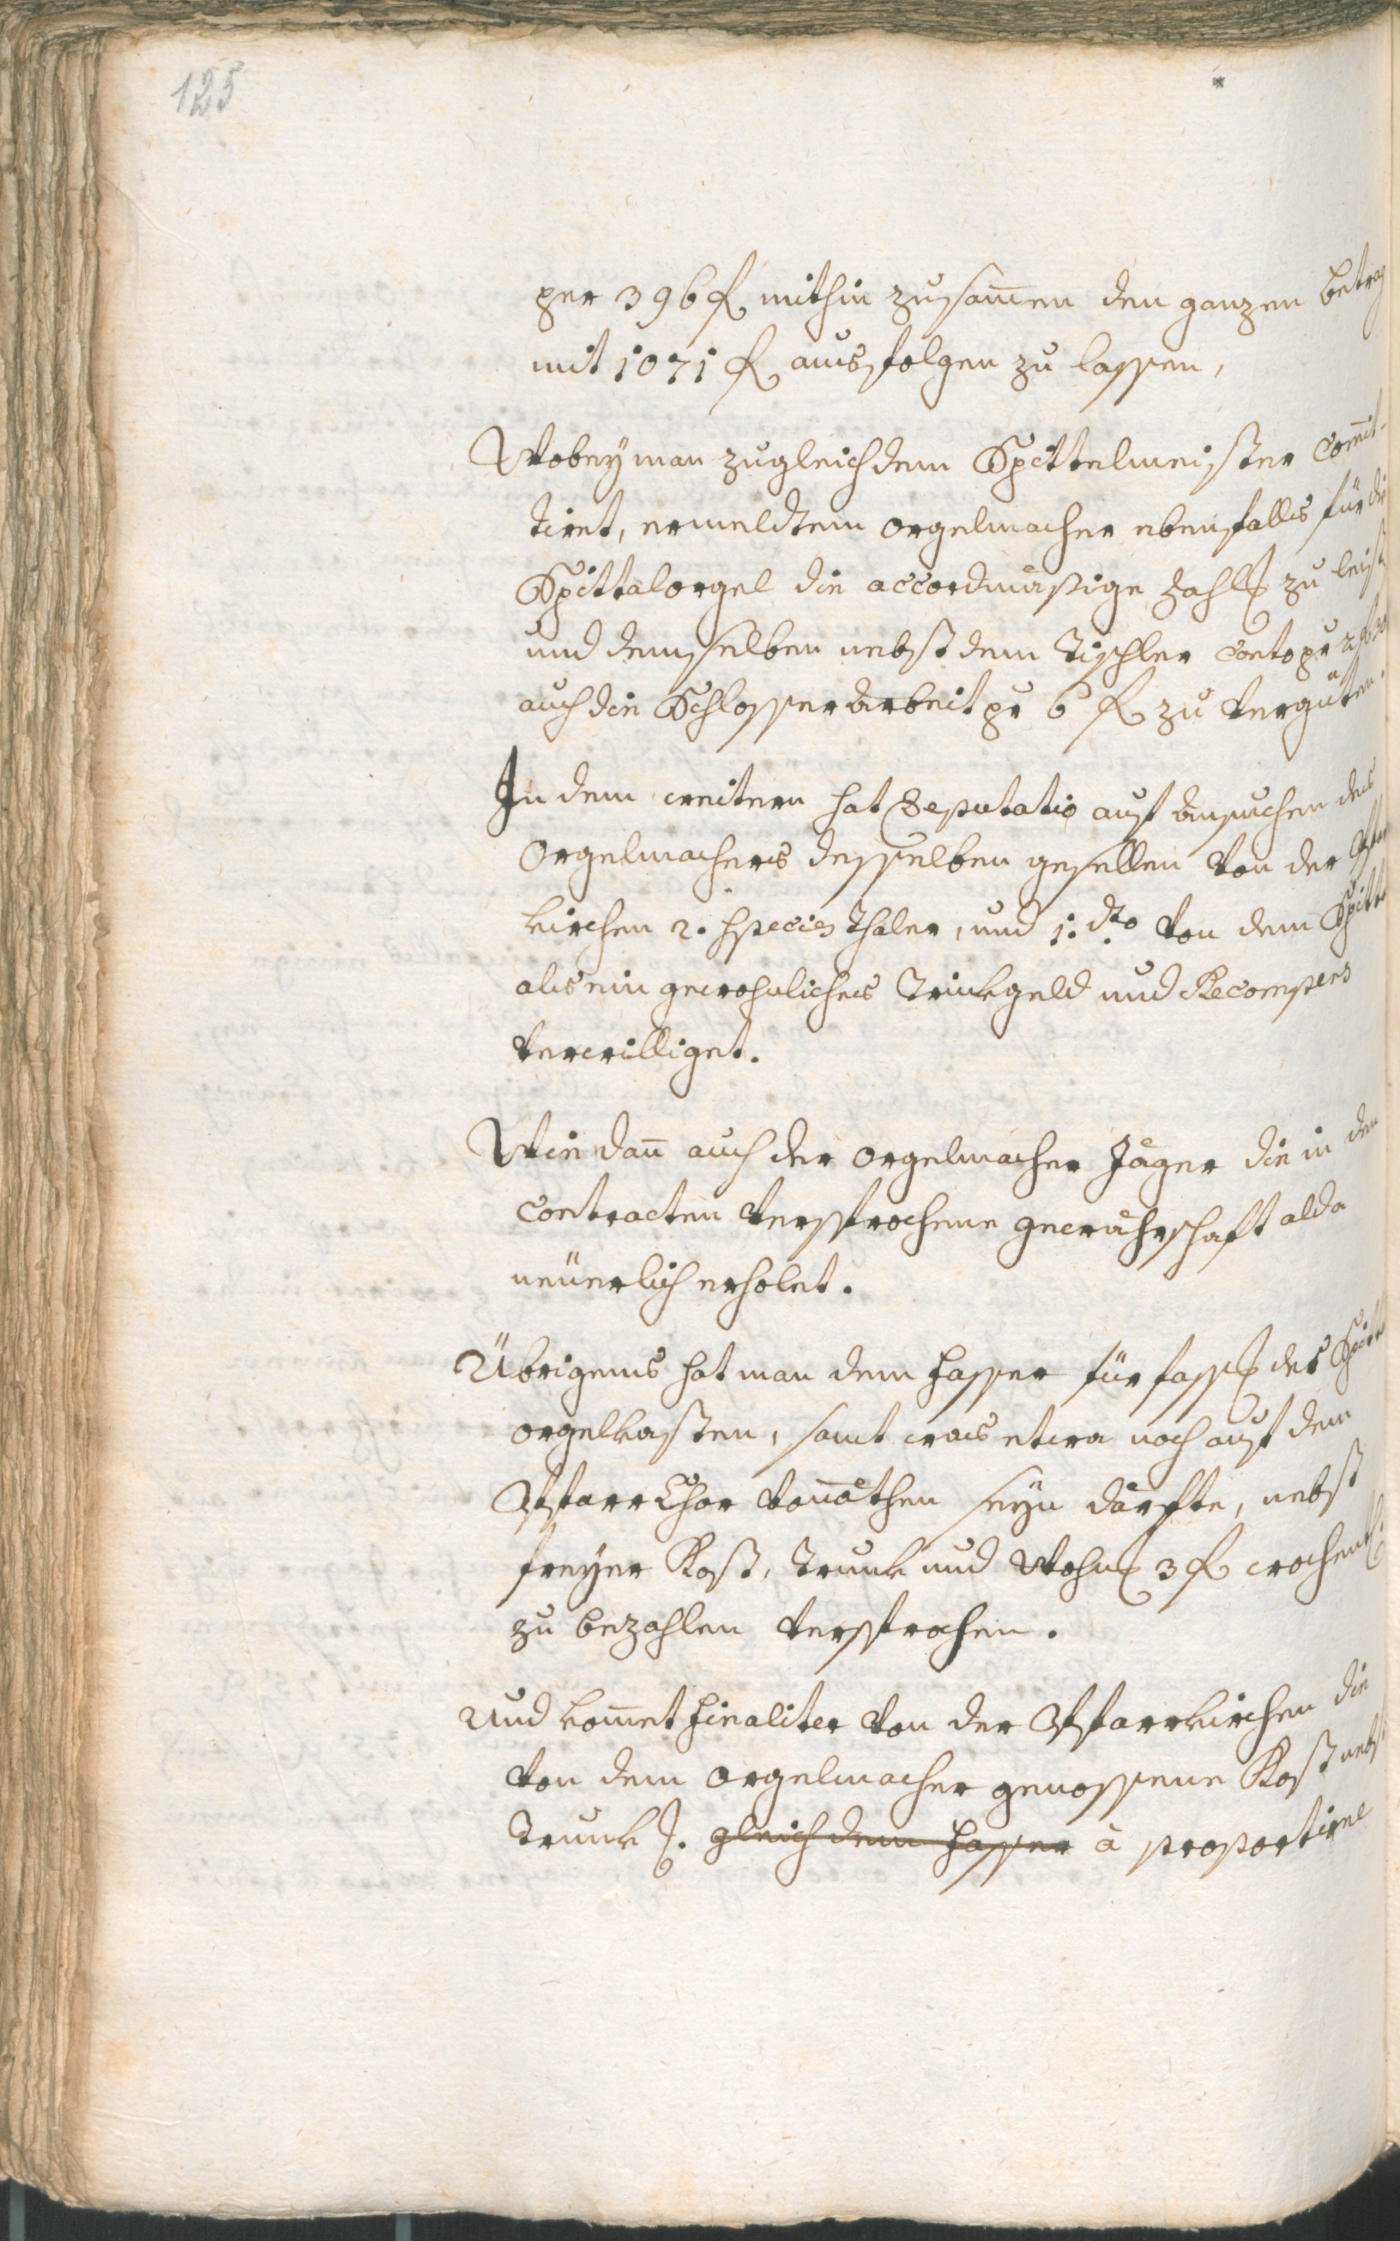 125
per 396 f mithin zusam̄en den ganzen betrag
mit 1071 f ausfolgen zu lassen,
Wobey man zugleich dem Spittelmeister com̄it-
tiret, ermeldtem orgelmacher ebenfalls für die
Spittalorgel die accordmäßige Zahlg zu leist
und demselben nebst dem Tischler Conto pr
auch die Schlosser arbeit pr 6 f zu vergüten.
In dem weitern hat Deputatio auf ansuchen des
Orgelmachers desselben gesellen von der
kirchen 2. Species Thaler, und 1. dto von dem Spitt
als ein gewohnliches Trinkgeld und Recompens
verwilliget.
Wie dan̄ auch der orgelmacher Jäger die in den
contracten versprochene gewährschaft alda
neüerlich erholet.
Übrigens hat man dem Fasser für fassg des
orgelkasten, samt was etwa noch auf dem
Pfarr Chor von̄öthen seyn därfte, nebst
freyer Kost, Trunk und Wohng 3 f wochentl
zu bezahlen versprochen.
Und kom̄et finaliter von der Pfarrkirchen die
von dem orgelmacher genossene Kost nebst
Trunk gleich dem Fasser à proportione